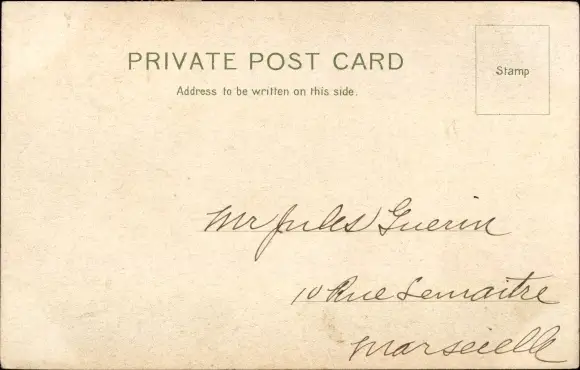 PRIVATE POST CARD
Address to be written on this side.
Stamp
Mr Jules Guerin
10 Rue Lemaitre
Marseille